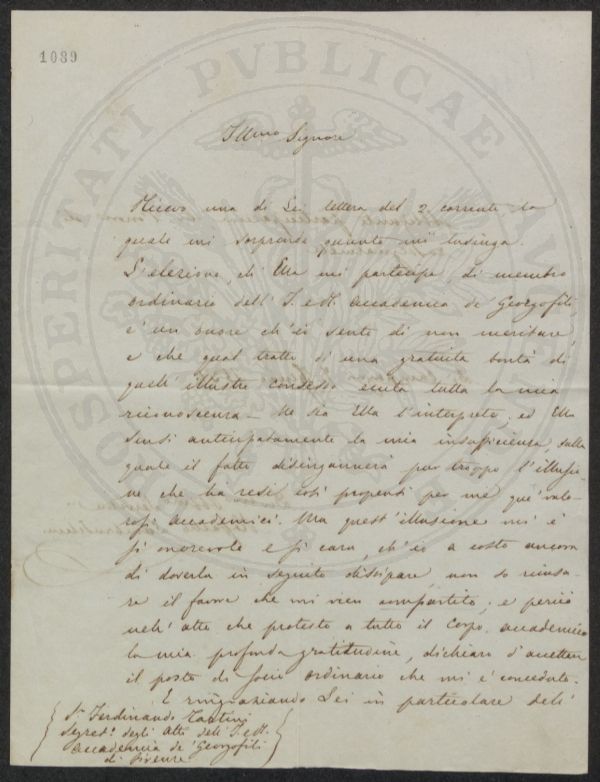 1089
PROSPERITATI PVBLICAE AVGENDAE
Illmo Signore
Ricevo una di Lei lettera del 2 corrente la
quale mi sorprende quanto mi lusinga.
L'elezione, ch'Ella mi partecipa, di membro
ordinario dell'I. e R. Accademia de' Georgofili,
è un onore ch'io sento di non meritare
e che qual tratto di una gratuita bontà di
quell'illustre consesso eccita tutta la mia
riconoscenza. Me sia Ella l'interprete, ed Ella
scusi anticipatamente la mia insufficienza sulla
quale il fatto disingannerà pur troppo l'illusio
ne che ha resi così propensi per me que' valo
rosi accademici. Ma quest'illusione mi è
sì onorevole e sì cara, ch'io a costo ancora
di doverla in seguito dissipare, non so ricusa
re il favore che mi vien compartito; e perciò
nell'atto che protesto a tutto il Corpo accademico
la mia profonda gratitudine, dichiaro d'accettare
il posto di Socio ordinario che mi è conceduto.
E ringraziando Lei in particolare dell'
Sr. Ferdinando Tartini
Segreto. degli Atti dell'I. e R.
Accademia de' Georgofili
di Firenze